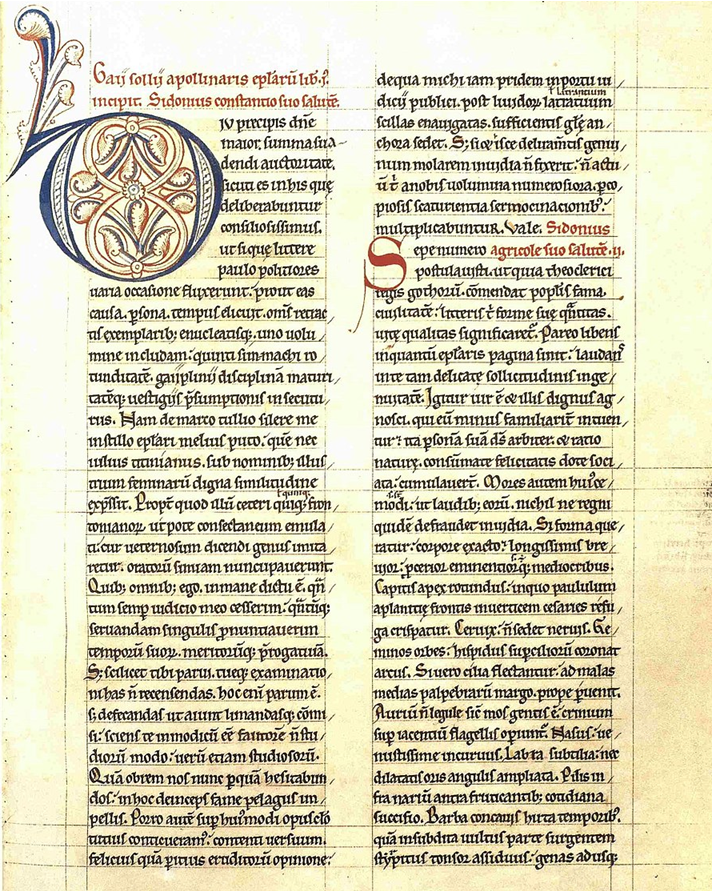 Gaii sollii apollinaris epl̄arū lib. j.
incipit. Sidonius constantio suo salutē.
DIV precipis dn̄e
maior. summa sua-
dendi auctoritate.
sicuti es in his que
deliberabuntur
consiliosissimus.
ut siquę litterę
paulo politiores
uaria occasione fluxerunt. prout eas
causa. ꝑsona. tempus elicuit. om̄s retrac
tis exemplarib; enucleatisq;. uno uolu
mine includam. quinti simmachi ro
tunditatē. gaii plinii disciplinā maturi
tatēq; uestigiis p̄sumptionis insecutu
rus. Nam de marco tullio silere me
in stilo epl̄ari melius puto. quē nec
iulius titinianus. sub nominib; illus
trium feminarū digna similitudine
exp̄ssit. Propt̄ quod illū ceteri quiq; fron
tonianoꝝ ut pote consectaneum emula
ti. cur ueternosum dicendi genus imita
retur. oratorū simiam nuncupauerunt.
Quib; omnib; ego. inmane dictu ē. qn̄
tum semꝑ iudicio meo cesserim. qn̄tūq;
seruandam singulis ꝓnuntiauerim
temporū suoꝝ. meritorūq; p̄rogatiuā.
S; scilicet tibi parui. tueq; examinatio
ni has n̄ recensendas. hoc eni parum ē.
s; defecandas ut aiunt limandasq; cōmi
si. sciens te inmodicū eē fautorē n̄ stu
diorū modo. uerū etiam studiosorū.
Quā obrem nos nunc ꝑquā hesitabun
dos. in hoc deinceps fame pelagus im
pellis. Porro autē suꝑ huiꝰmodi opusclo
tutius conticueram. contenti uersuum.
felicius quā ꝑitius editorū opinione.
de qua michi iam pridem in portu iu
dicii publici. post liuidoꝝ latratuum
scillas enauigatas. sufficientis glę an
chora sedet. S; si ⁊ isce deliram̄tis genu
inum molarem inuidia n̄ fixerit. n̄ actu
tū t̄ a nobis uolumina numerosiora. ꝑco
piosis scaturientia sermocinationib;.
multiplicabuntur. Vale. Sidonius
Sepe numero agricole suo salutē. ii.
postulauisti. ut quia theoderici
regis gothorū. cōmendat popl̄is fama
ciuilitatē. litteris t̄ forme suę qn̄titas.
uitę qualitas significaret̄. Pareo libens
inquantū epl̄aris pagina sinit. laudans
in te tam delicatę sollicitudinis inge
nuitatē. Igitur uir ē ⁊ illis dignus ag
nosci. qui eū minus familiarit̄ intuen
tur. ita ꝑsonā suā dꝰ arbiter. ⁊ ratio
naturę. consūmatę felicitatis dote soci
ata. cumulauert̄. Mores autem huiꝰce
modi. ut laudib; eorū. nichil ne regni
quidē defraudet inuidia. Si forma que
ratur. corpore exacto. longissimis bre
uior. ꝓcerior eminentiorq; mediocribus.
Capitis apex rotundus. in quo paululum
a planitie frontis in uerticem cesaries refu
ga crispatur. Ceruix. n̄ sedet neruis. Ge
minos orbes. hispidus suꝑciliorū coronat
arcus. Si uero cilia flectantur. ad malas
medias palpebrarū margo. prope ꝑuenit.
Auriū n̄ legule sic̄ mos gentis ē. crinium
suꝑ iacentiū flagellis oꝑiunt̄. Nasus. ue
nustissime incuruus. Labra subtilia. nec
dilatatis oris angulis ampliata. Pilis in
fra nariū antra fruticantib; cotidiana
succisio. Barba concauis hirta temporibꝰ.
quā in subdita uultus parte surgentem
stirpitus tonsor assiduus. genas adusq;